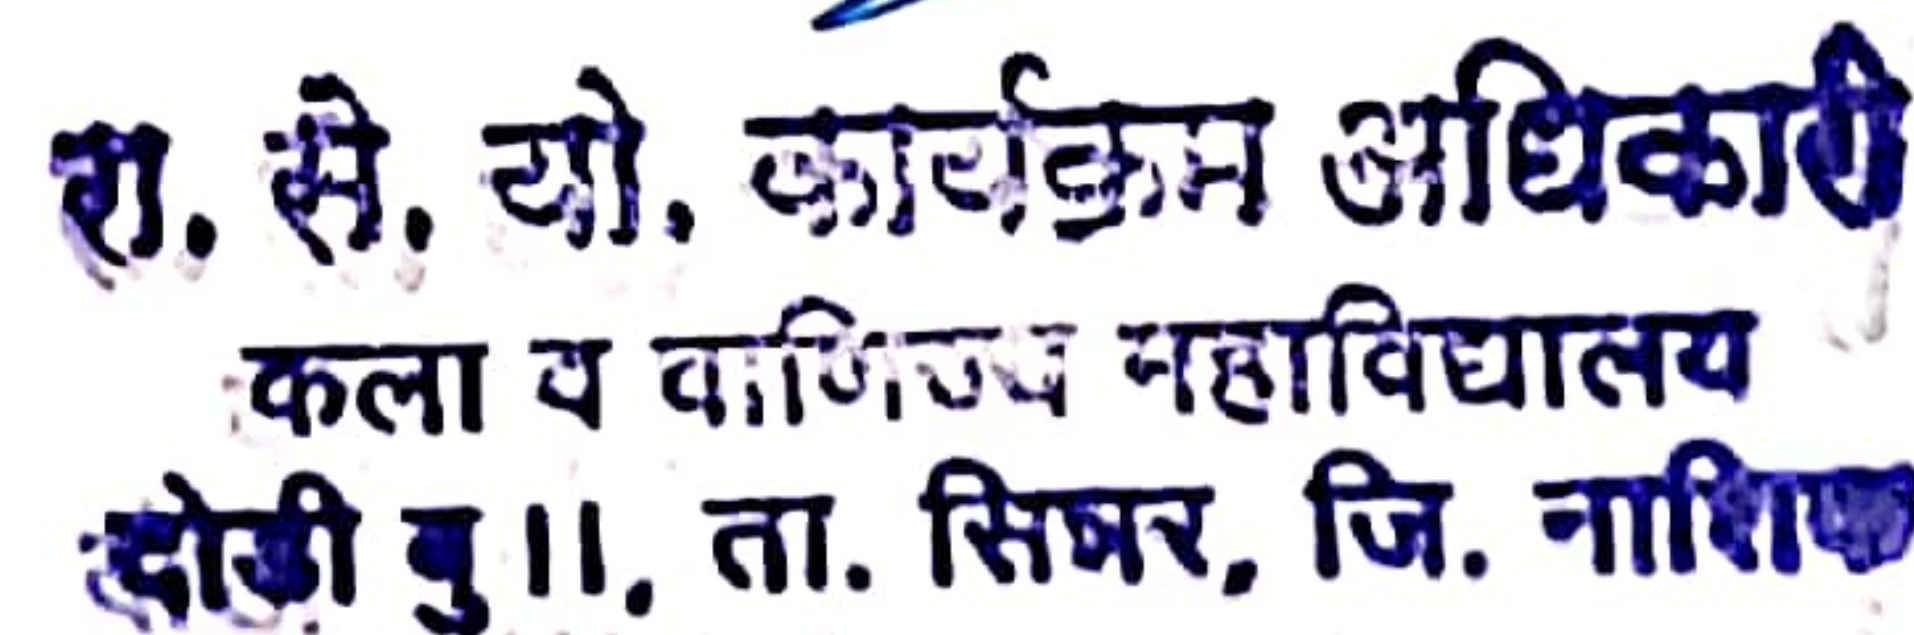 रा. से. यो. कार्यक्रम अधिकारी
कला व वाणिज्य महाविद्यालय
दोडी बु॥, ता. सिन्नर, जि. नाशिक